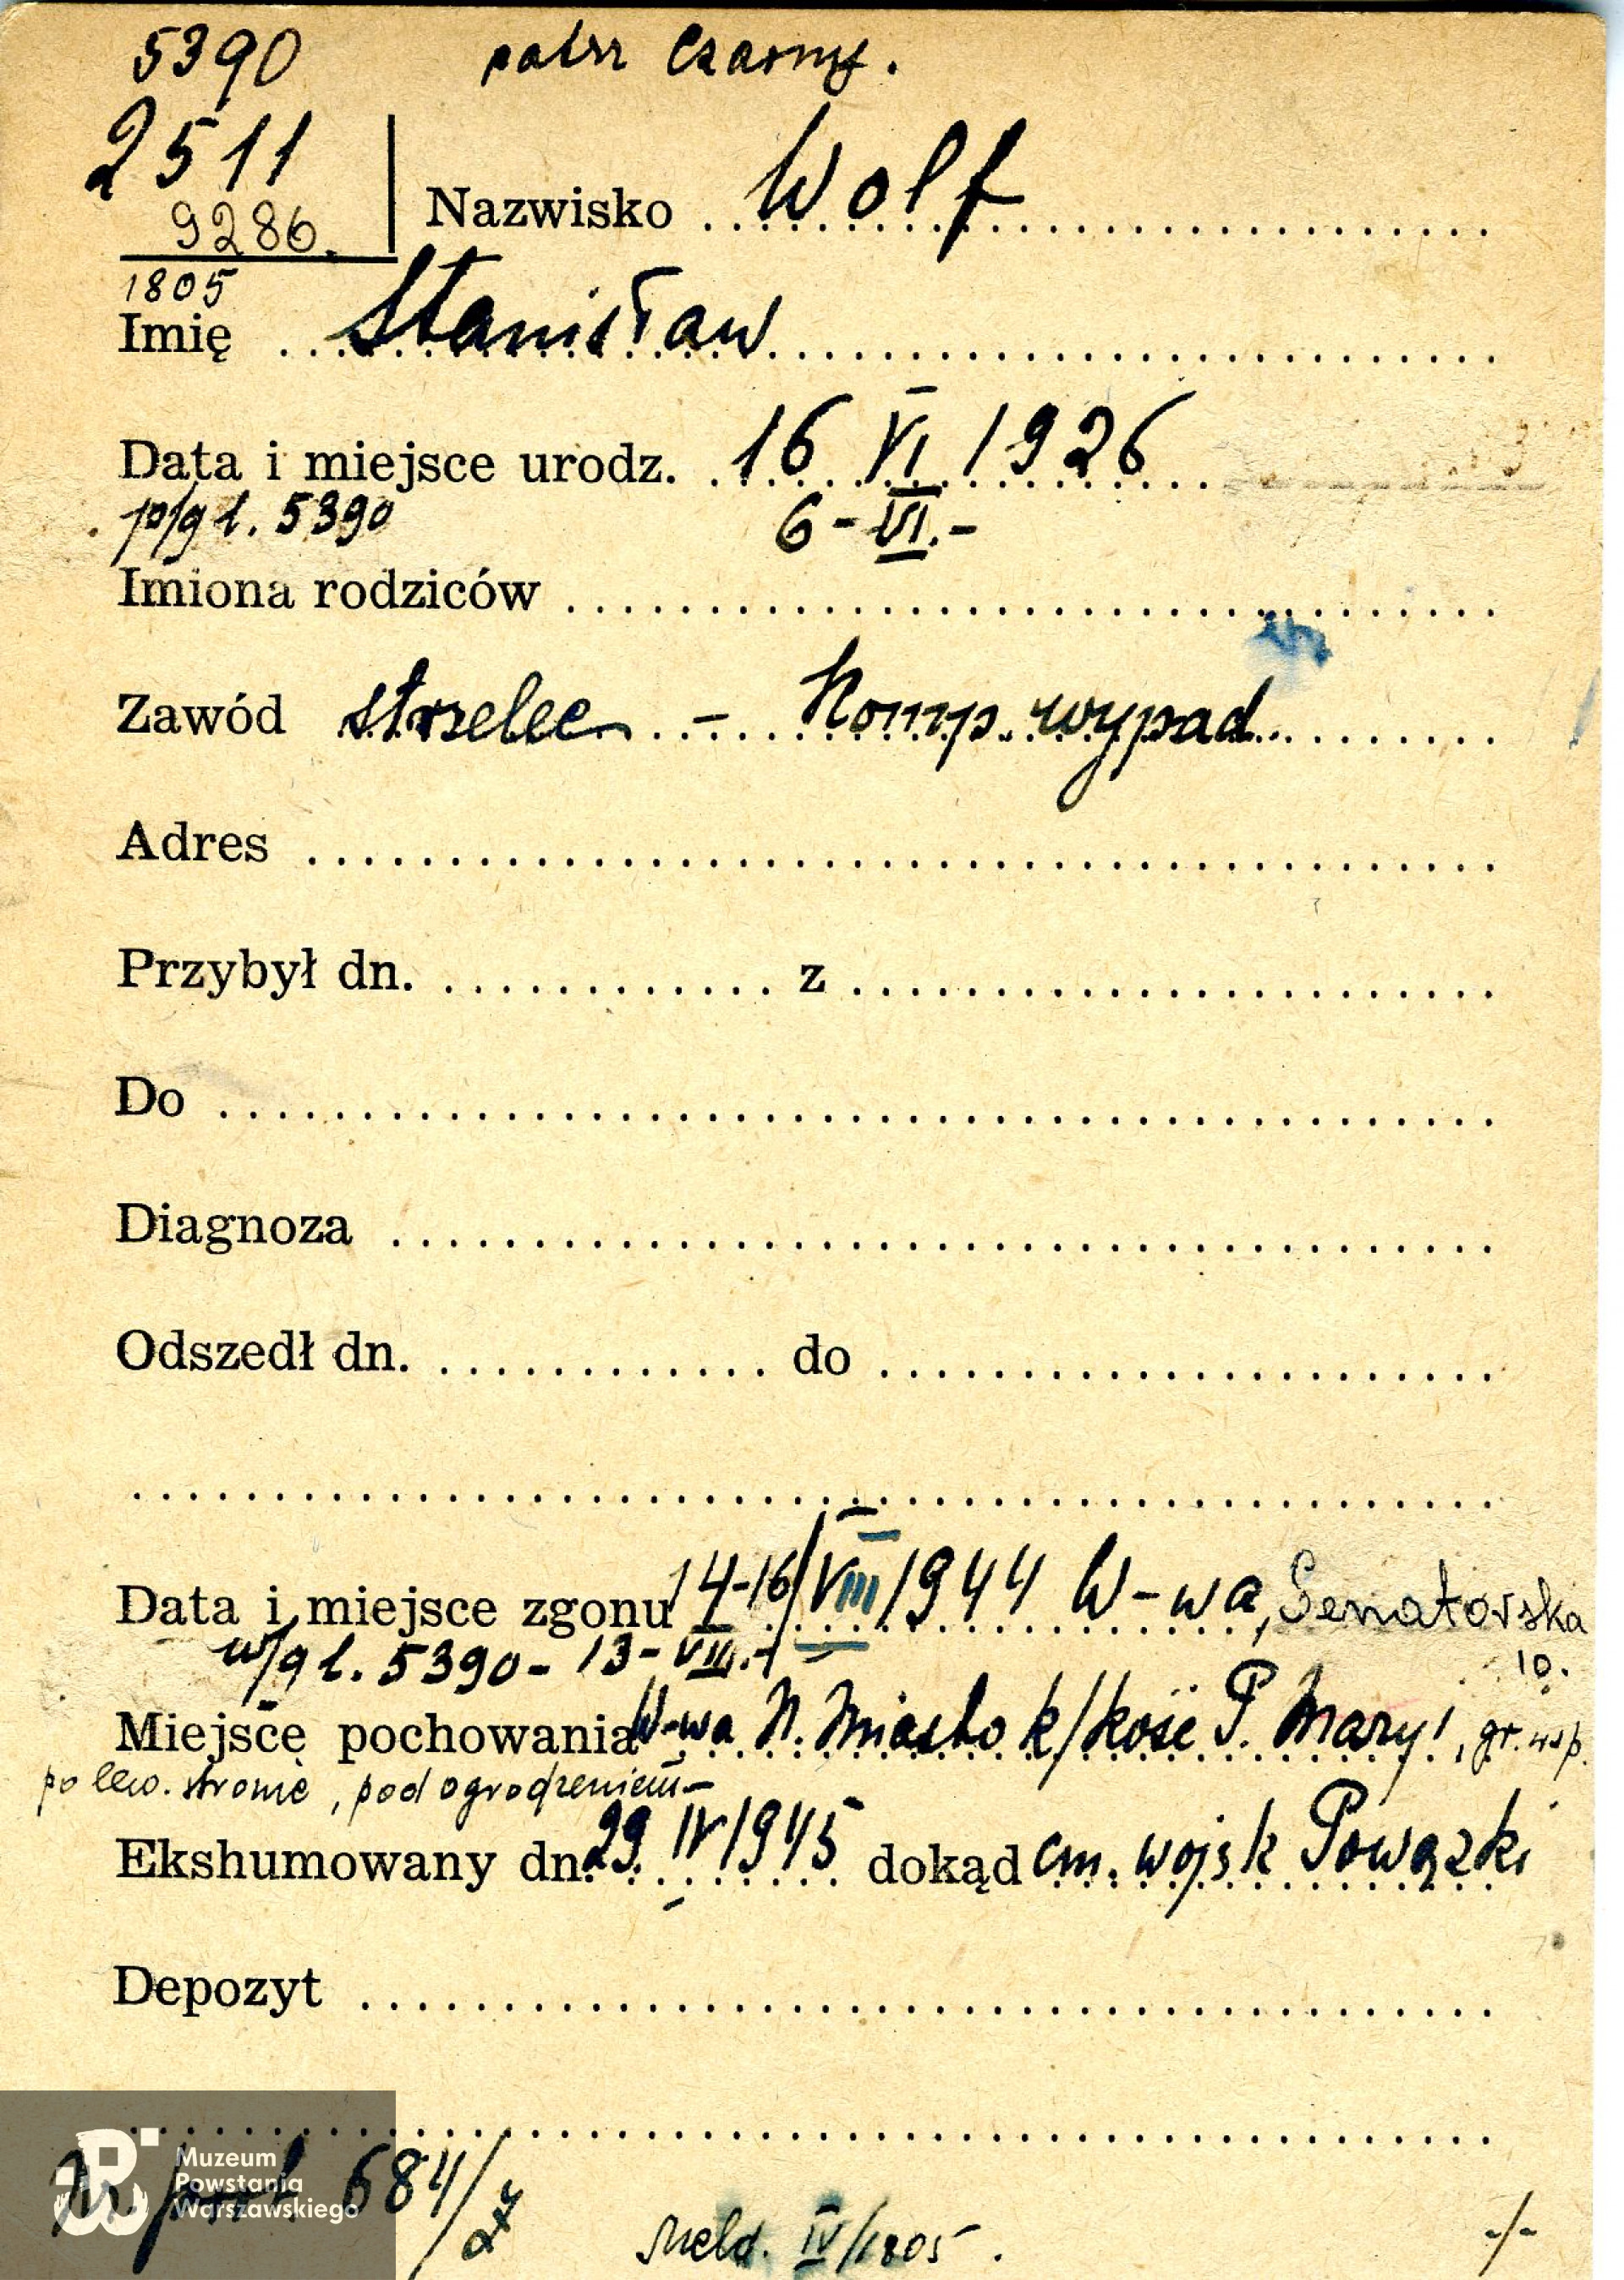 5390 patrz Czarny.
2511
9286.
Nazwisko Wolf
1805
Imię Stanisław
Data i miejsce urodz. 16 VI 1926
p/gł. 5390 6-VI.-
Imiona rodziców
Zawód strzelec - Komp. wypad.
Adres
Przybył dn. z
Do
Diagnoza
Odszedł dn. do
Data i miejsce zgonu 14-16/VIII 1944 W-wa, Senatorska
w/gł. 5390 - 13-VIII.- 10.
Miejsce pochowania W-wa N. Miasto k/kość P. Maryi, gr. wsp.
po lew. stronie, pod ogrodzeniem-
Ekshumowany dn. 29. IV 1945 dokąd cm. wojsk Powązki
Depozyt
Muzeum
Powstania
Warszawskiego
684/
Meld. IV/1805.
-/-